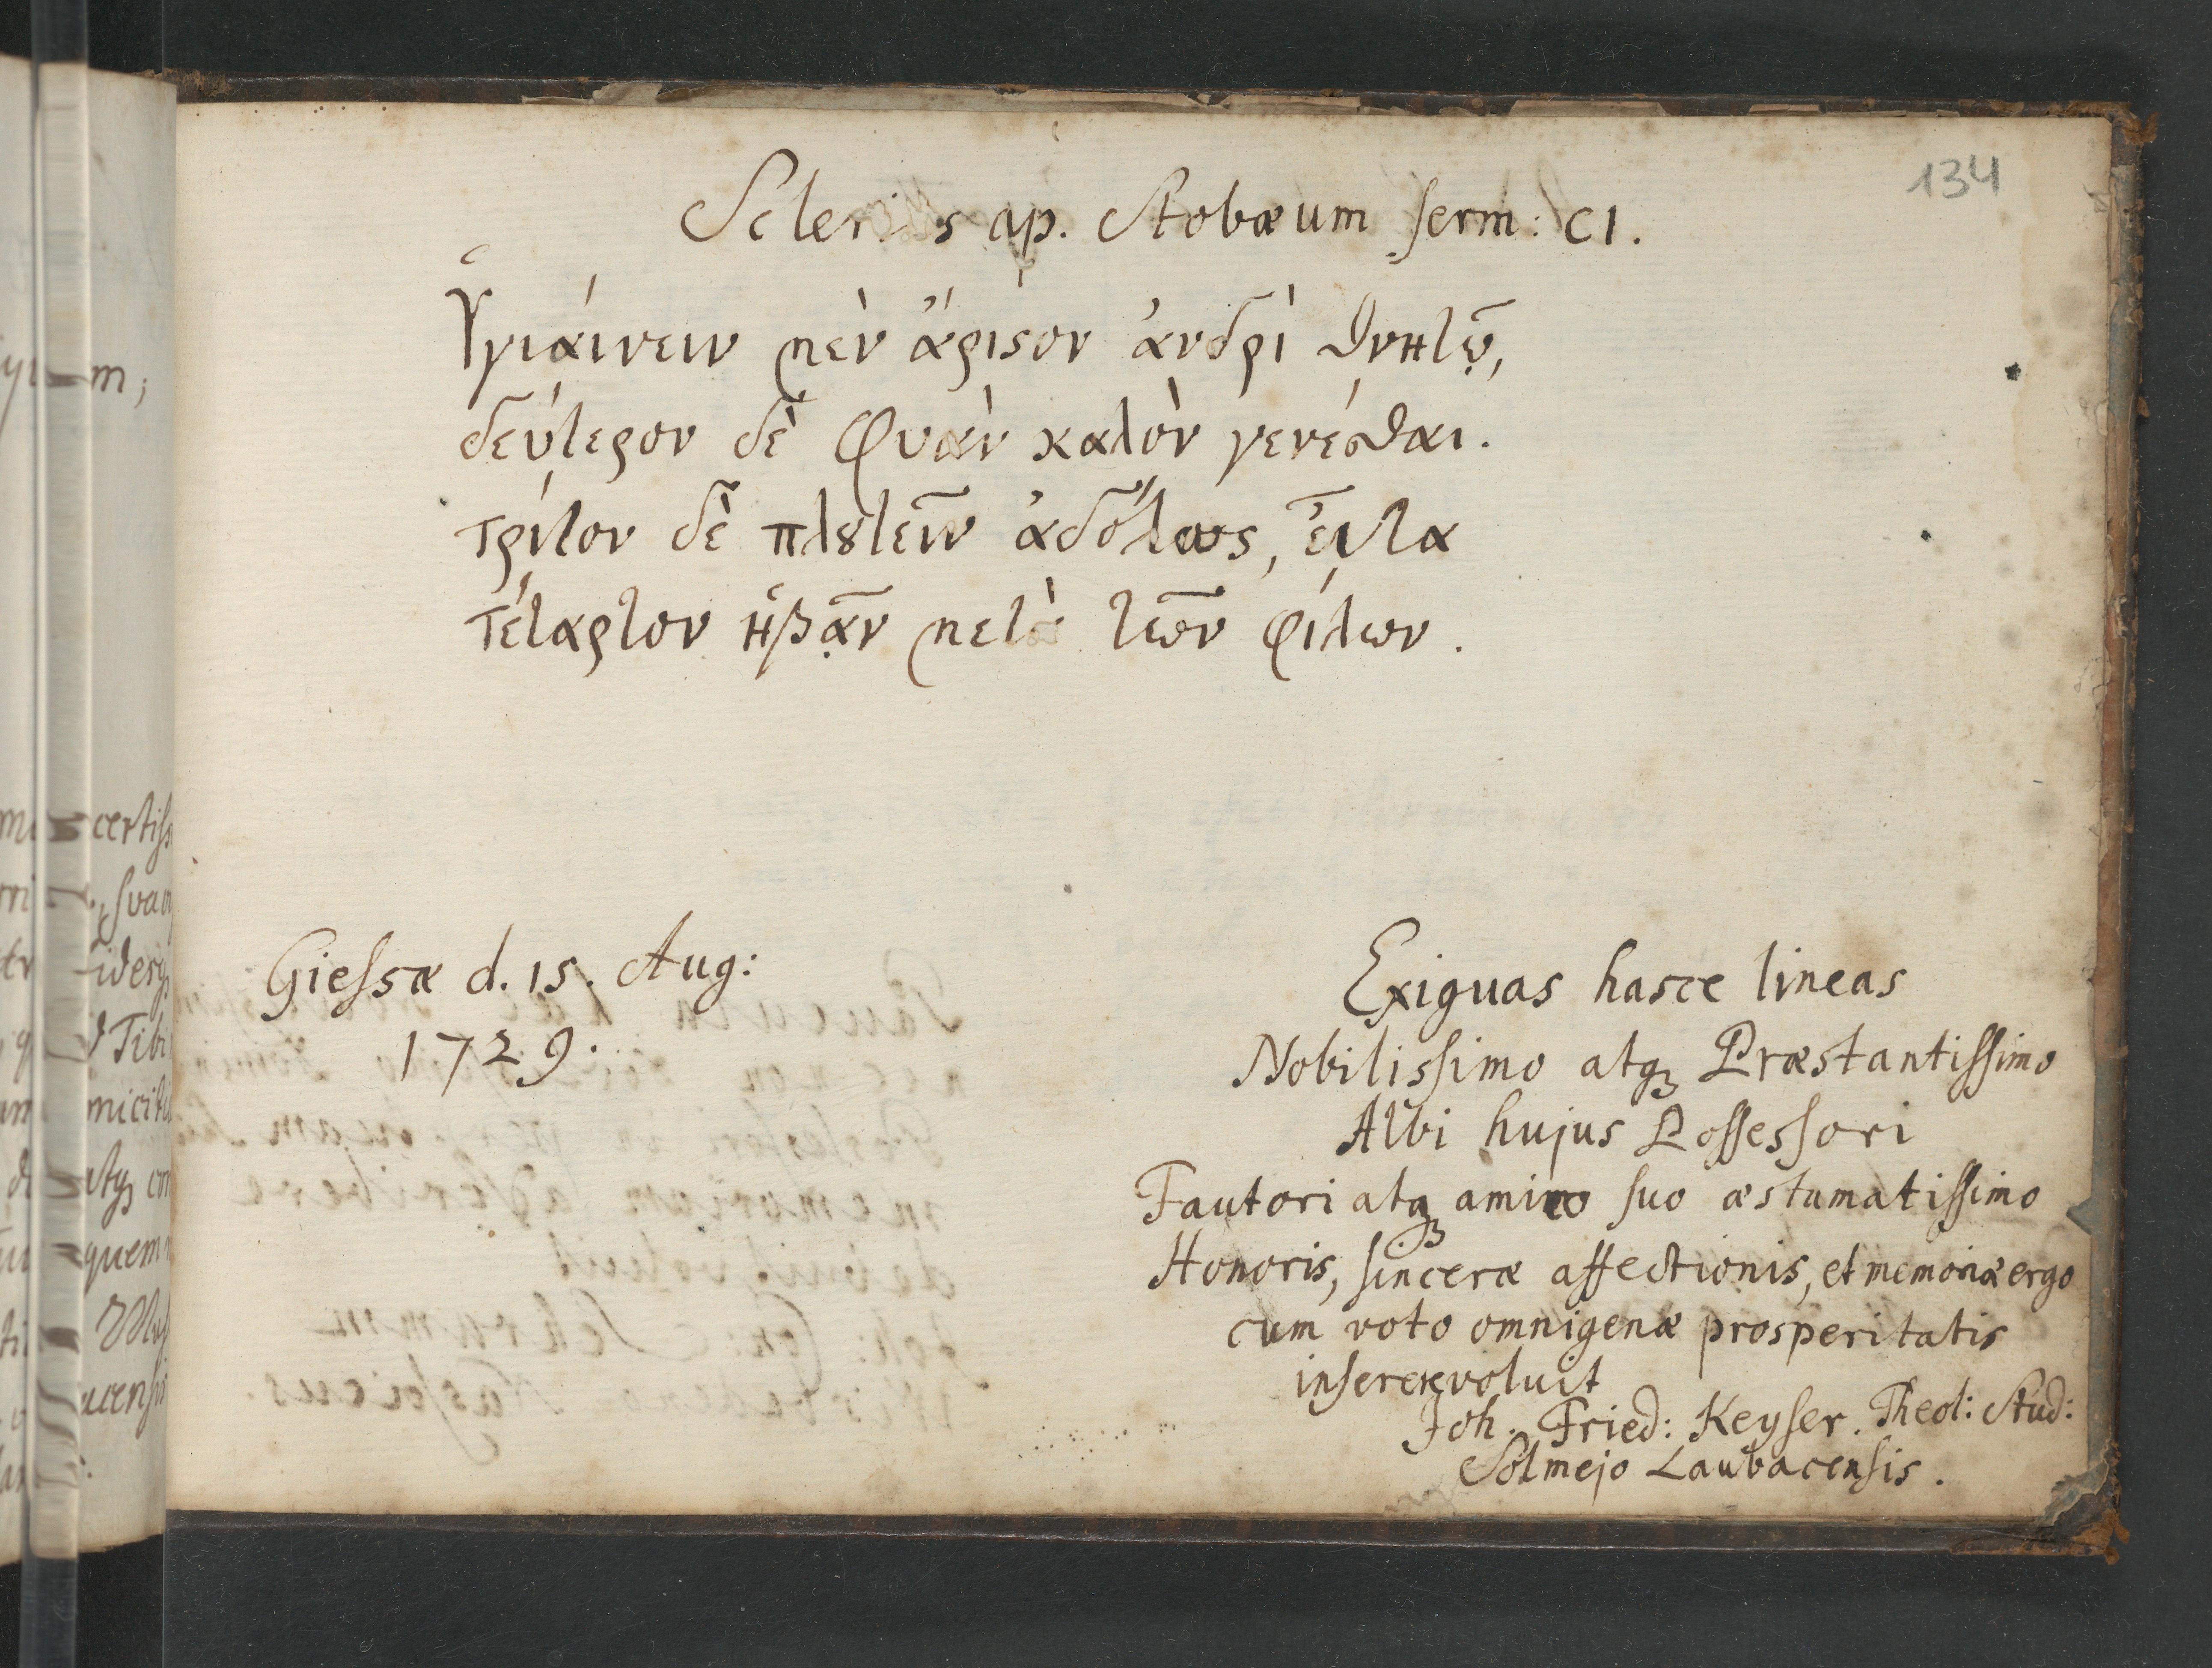 134
ap. Stobæum serm: CI.
Ὑγιάινειν μὲν ἄριϛον ἀνδρὶ θνητῷ,
δεύτερον δὲ φυὰν καλὸν γενέσθαι.
τρίτον δὲ πλȣτεῖν ἀδόλως, εἶτα
τέταρτον ἡβᾷν μετὰ τῶν φίλων.
Giessæ d. 15. Aug:
1729.
Exiguas hasce lineas
Nobilissimo atq₃ Præstantissimo
Albi hujus Possessori
Fautori atq₃ amico suo æstumatissimo
Honoris, sinceræ affectionis, et memoriæ ergo
cum voto omnigenæ prosperitatis
inserere voluit
Joh. Fried: Keyser. Theol: Stud:
Solmejo Laubacensis.